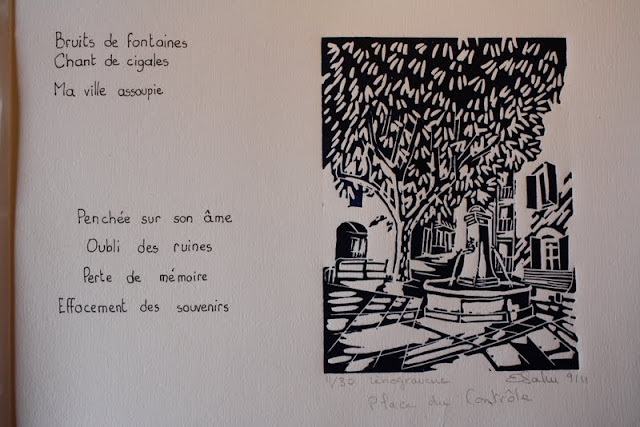 Bruits de fontaines
Chant de cigales
Ma ville assoupie
Penchée sur son âme
Oubli des ruines
Perte de mémoire
Effacement des souvenirs
11/30 Linogravure 9/11
Place du Contrôle